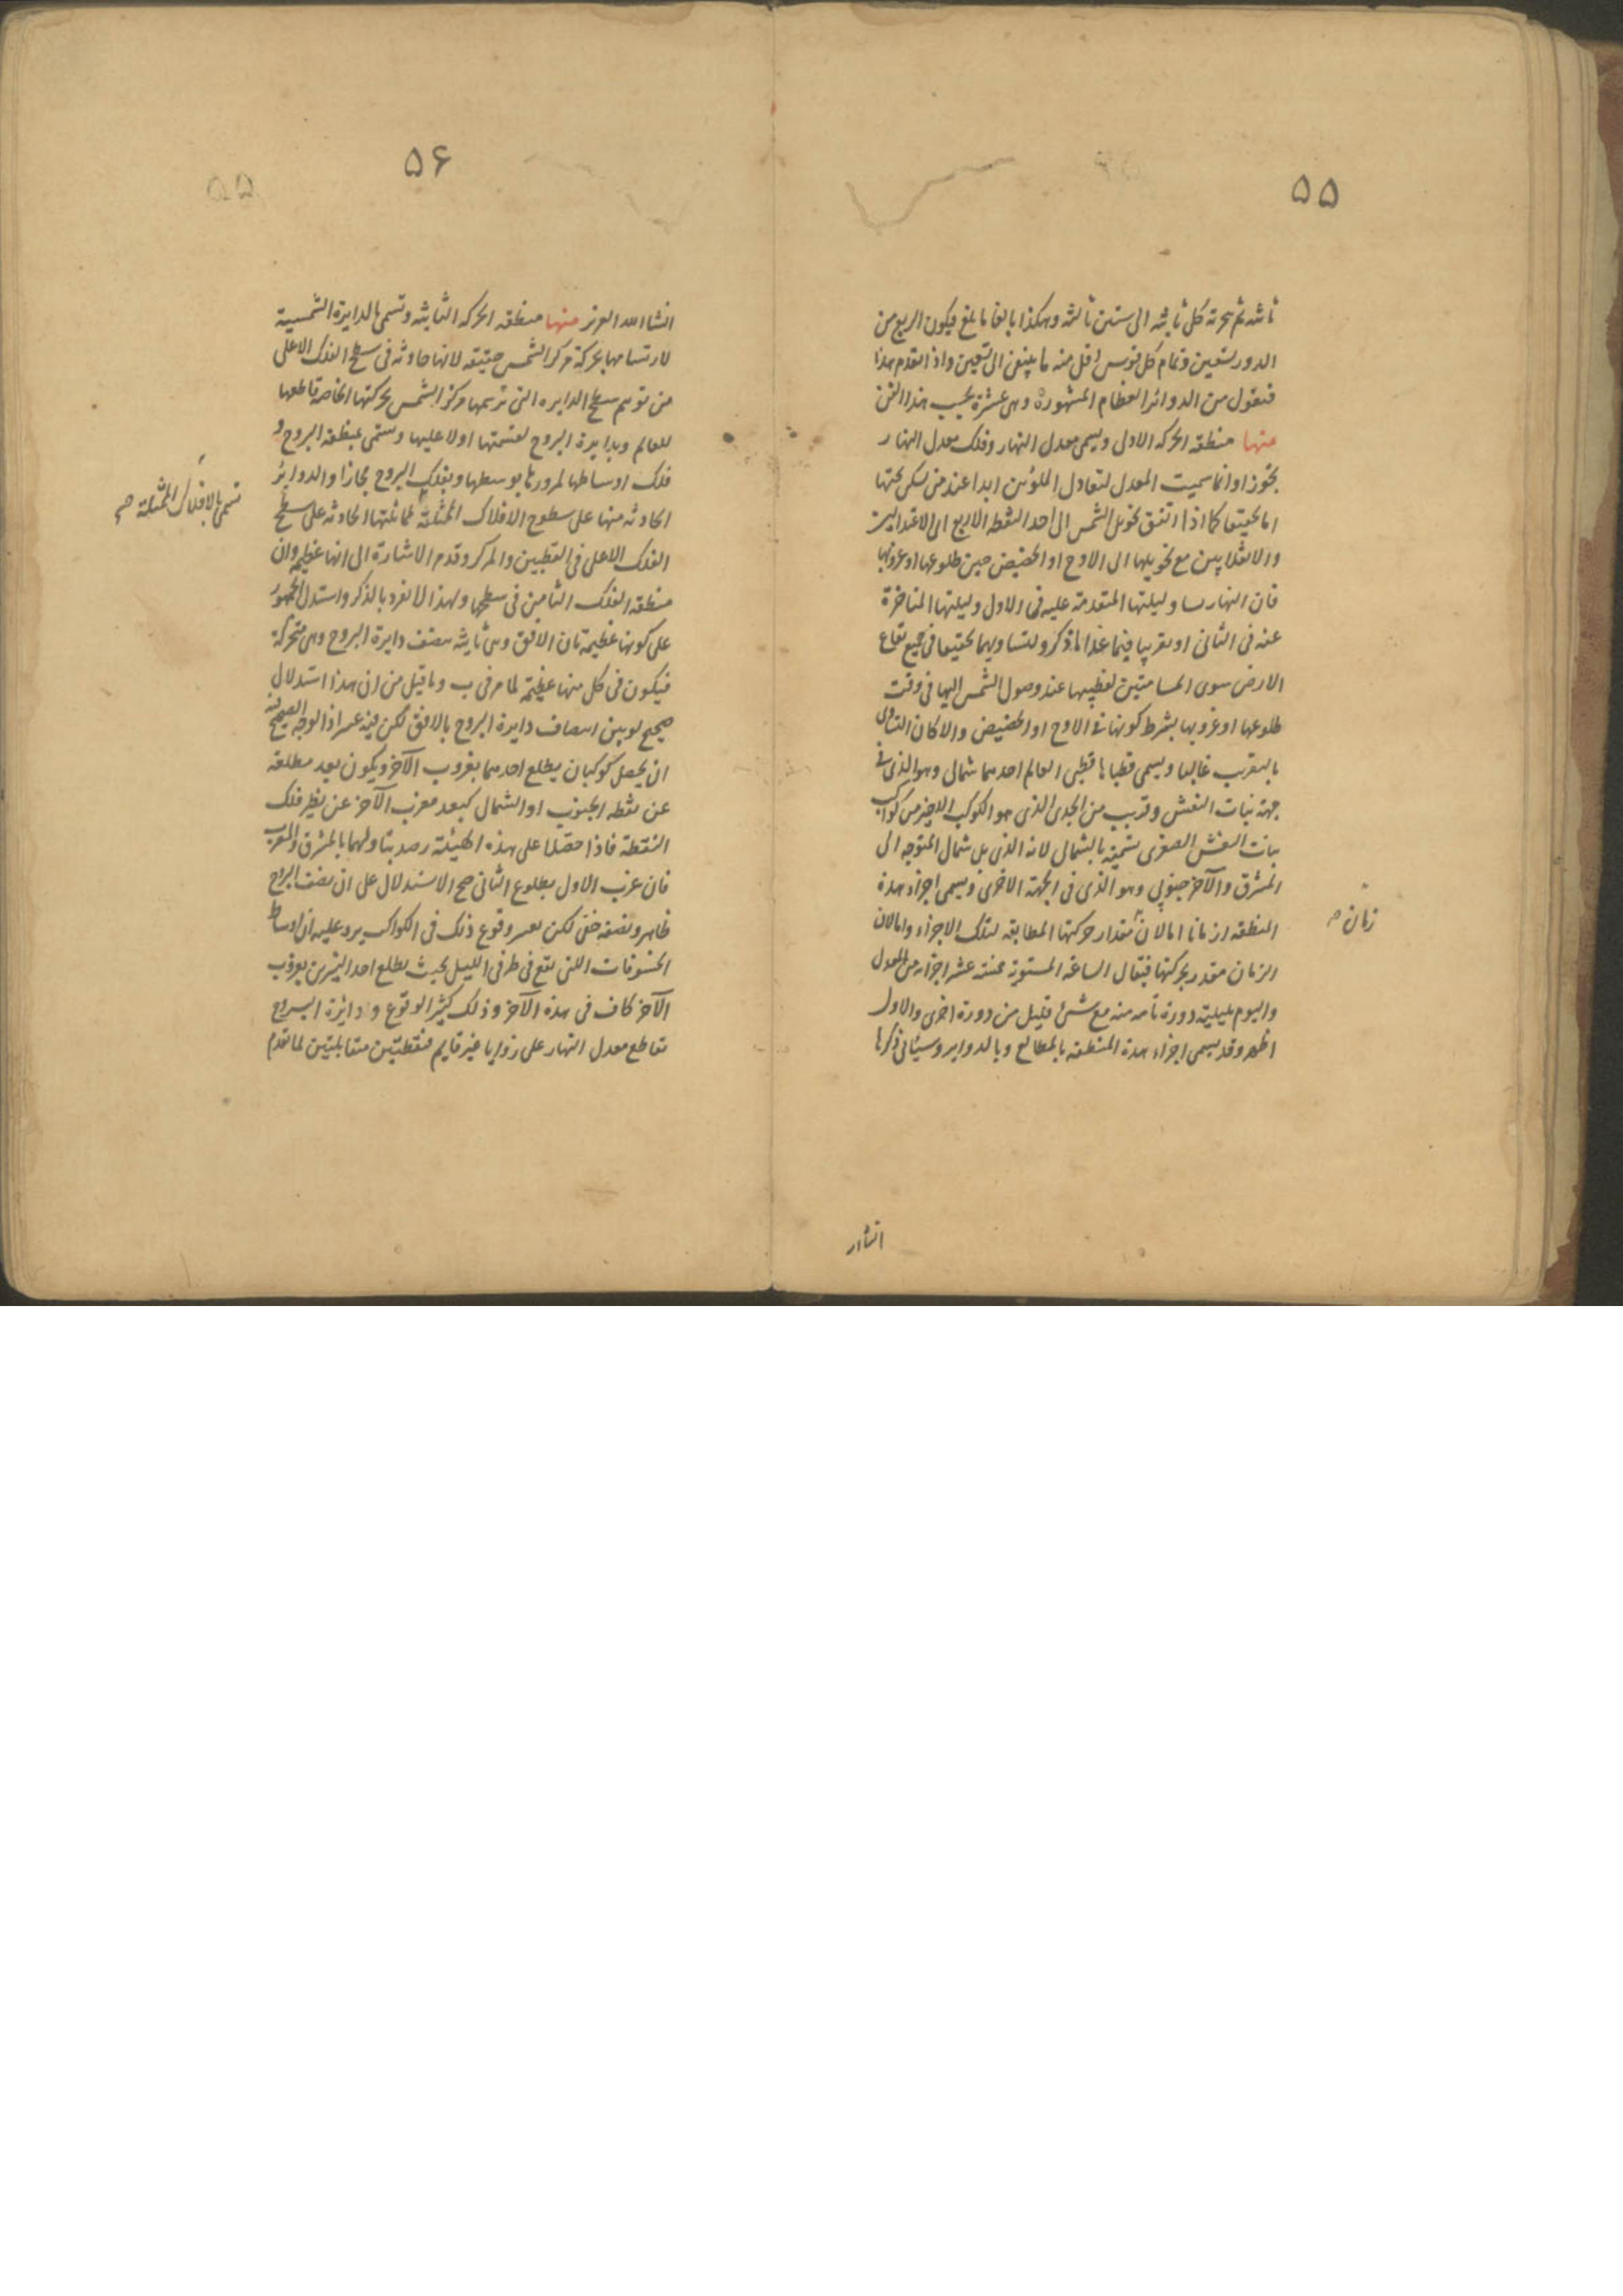 ۵۵
ثانیه ثم تجزئة كل ثانية الى ستين ثالثه وهكذا بالغا ما بلغ فيكون الربع من
الدور تسعين وتمام كل قوس اقل منه ما يبقى الى تسعين واذا تقدم هذا
فنقول من الدوائر العظام المشهورة وهى عشرة بحسب هذا الفن
منها منطقه الحركه الاولى ويسمى معدل النهار وفلك معدل النهار
تجوزا وانما سميت المعدل لتعادل الملوين ابدا عند من سكن تحتها
اما تحقيقا كما اذا اتفق تحويل الشمس الى احد النقط الاربع اى الاعتدالين
والانقلابين مع تحويلها الى الاوج او الحضيض حين طلوعها او غروبها
فان النهار وليلتها المتقدمة عليه فى الاول وليلتها المتاخرة
عنه فى الثانى او تقريبا فيما عدا ما ذكر ولتساويهما تحقيقا فى جميع بقاع
الارض سوى المسامتين لقطبيها عند وصول الشمس اليها فى وقت
طلوعها او غروبها بشرط كونها فى الاوج او الحضيض والا كان التساوى
بالتقريب غالبا ويسمى قطباها قطبى العالم احدهما شمالى وهو الذى فى
جهة بنات النعش وقريب من الجدى الذى هو الكوكب الاخير من كواكب
بنات النعش الصغرى سميته بالشمالى لانه الذى يلى شمال المتوجه الى
المشرق والآخر جنوبى وهو الذى فى الجهة الاخرى ويسمى اجزاء هذه
المنطقه ازمانا اما لان مقدار حركتها المطابقه لتلك الاجزاء واما لان
زمان
الزمان مقدر بحركتها فيقال الساعة المستوية خمسة عشر اجزاء من المعدل
واليوم بليلته دورة تامه منه مع شئ قليل من دورة اخرى والاول
اظهر وقد يسمى اجزاء هذة المنطقه بالمطالع وبالدواير وسيئاتى ذكرها
۵۶
انشا الله العزيز منها منطقه الحركه الثانيه وتسمى بالدايرة الشمسية
لارتسامها بحركة مركز الشمس حقيقه لانها حادثه فى سطح الفلك الاعلى
من توهم سطح الدايره التى ترسمها مركز الشمس بحركتها الخاصة قاطعها
للعالم وبدايرة البروج لقسمتها اولا عليها وتسمى بمنطقه البروج و
فلك اوساطها لمرورها بوسطها وبفلك البروج مجازا والدوائر
الحادثه منها على سطوح الافلاك الممثلة لمماثلتها الحادثه على سطح
تسمى بالافلاك الممثلة صح
الفلك الاعلى فى القطبين والمركز وقدم الاشارة الى انها عظيمه وان
منطقه الفلك الثامن فى سطحها ولهذا لا تفرد بالذكر واستدل الجمهور
على كونها عظيمة بان الافق وهى ثابته منصف دايرة البروج وهى متحركة
فيكون فى كل منها عظيمة لما مر فى ب وما قيل من ان هذا استدلال
صحيح لو بين انصاف دايرة البروج بالافق لكن فيه عسر اذ الوجه الصحيح فيه
ان يحصل كوكبان يطلع احدهما بغروب الآخر ويكون بعد مطلعه
عن نقطه الجنوب او الشمال كبعد مغرب الآخر عن نظير تلك
النقطة فاذا حصلا على هذه الهيئة رصد بتاولهما بالمشرق والمغرب
فان غرب الاول بطلوع الثانى صح الاستدلال على ان نصف البروج
ظاهر ونصفه خفى لكن يعسر وقوع ذلك فى الكواكب يرد عليه ان اوساط
الخسوفات اللتى تقع فى طرفى الليل بحيث يطلع احد النيرين بغروب
الآخر كاف فى هذه الآخر وذلك كثير الوقوع ودائرة البروج
تقاطع معدل النهار على زوايا غير قايم فنقطتين متقابلتين لما تقدم